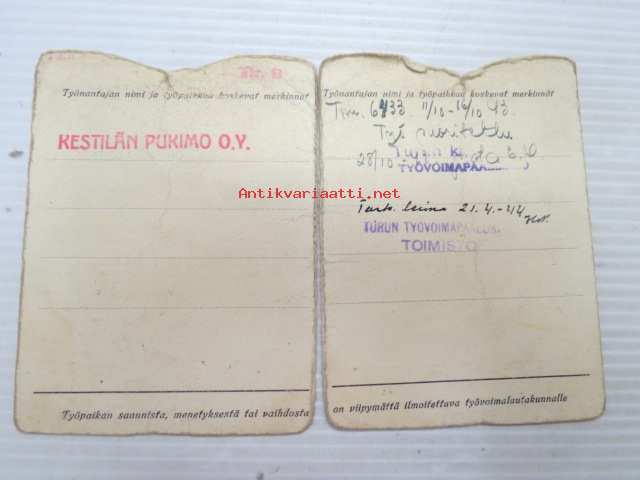 Nr. 3
Työnantajan nimi ja työpaikkaa koskevat merkinnät
KESTILÄN PUKIMO O.Y.
Työpaikan saannista, menetyksestä tai vaihdosta
Työnantajan nimi ja työpaikkaa koskevat merkinnät
6433. 11/10-16/10 43.
Työ suoritettu
28/10
TYÖVOIMAPÄÄ
Tark. leima 21.4.-44
TURUN TYÖVOIMAPÄÄLL
TOIMISTO
on viipymättä ilmoitettava työvoimalautakunnalle
Antikvariaatti.net